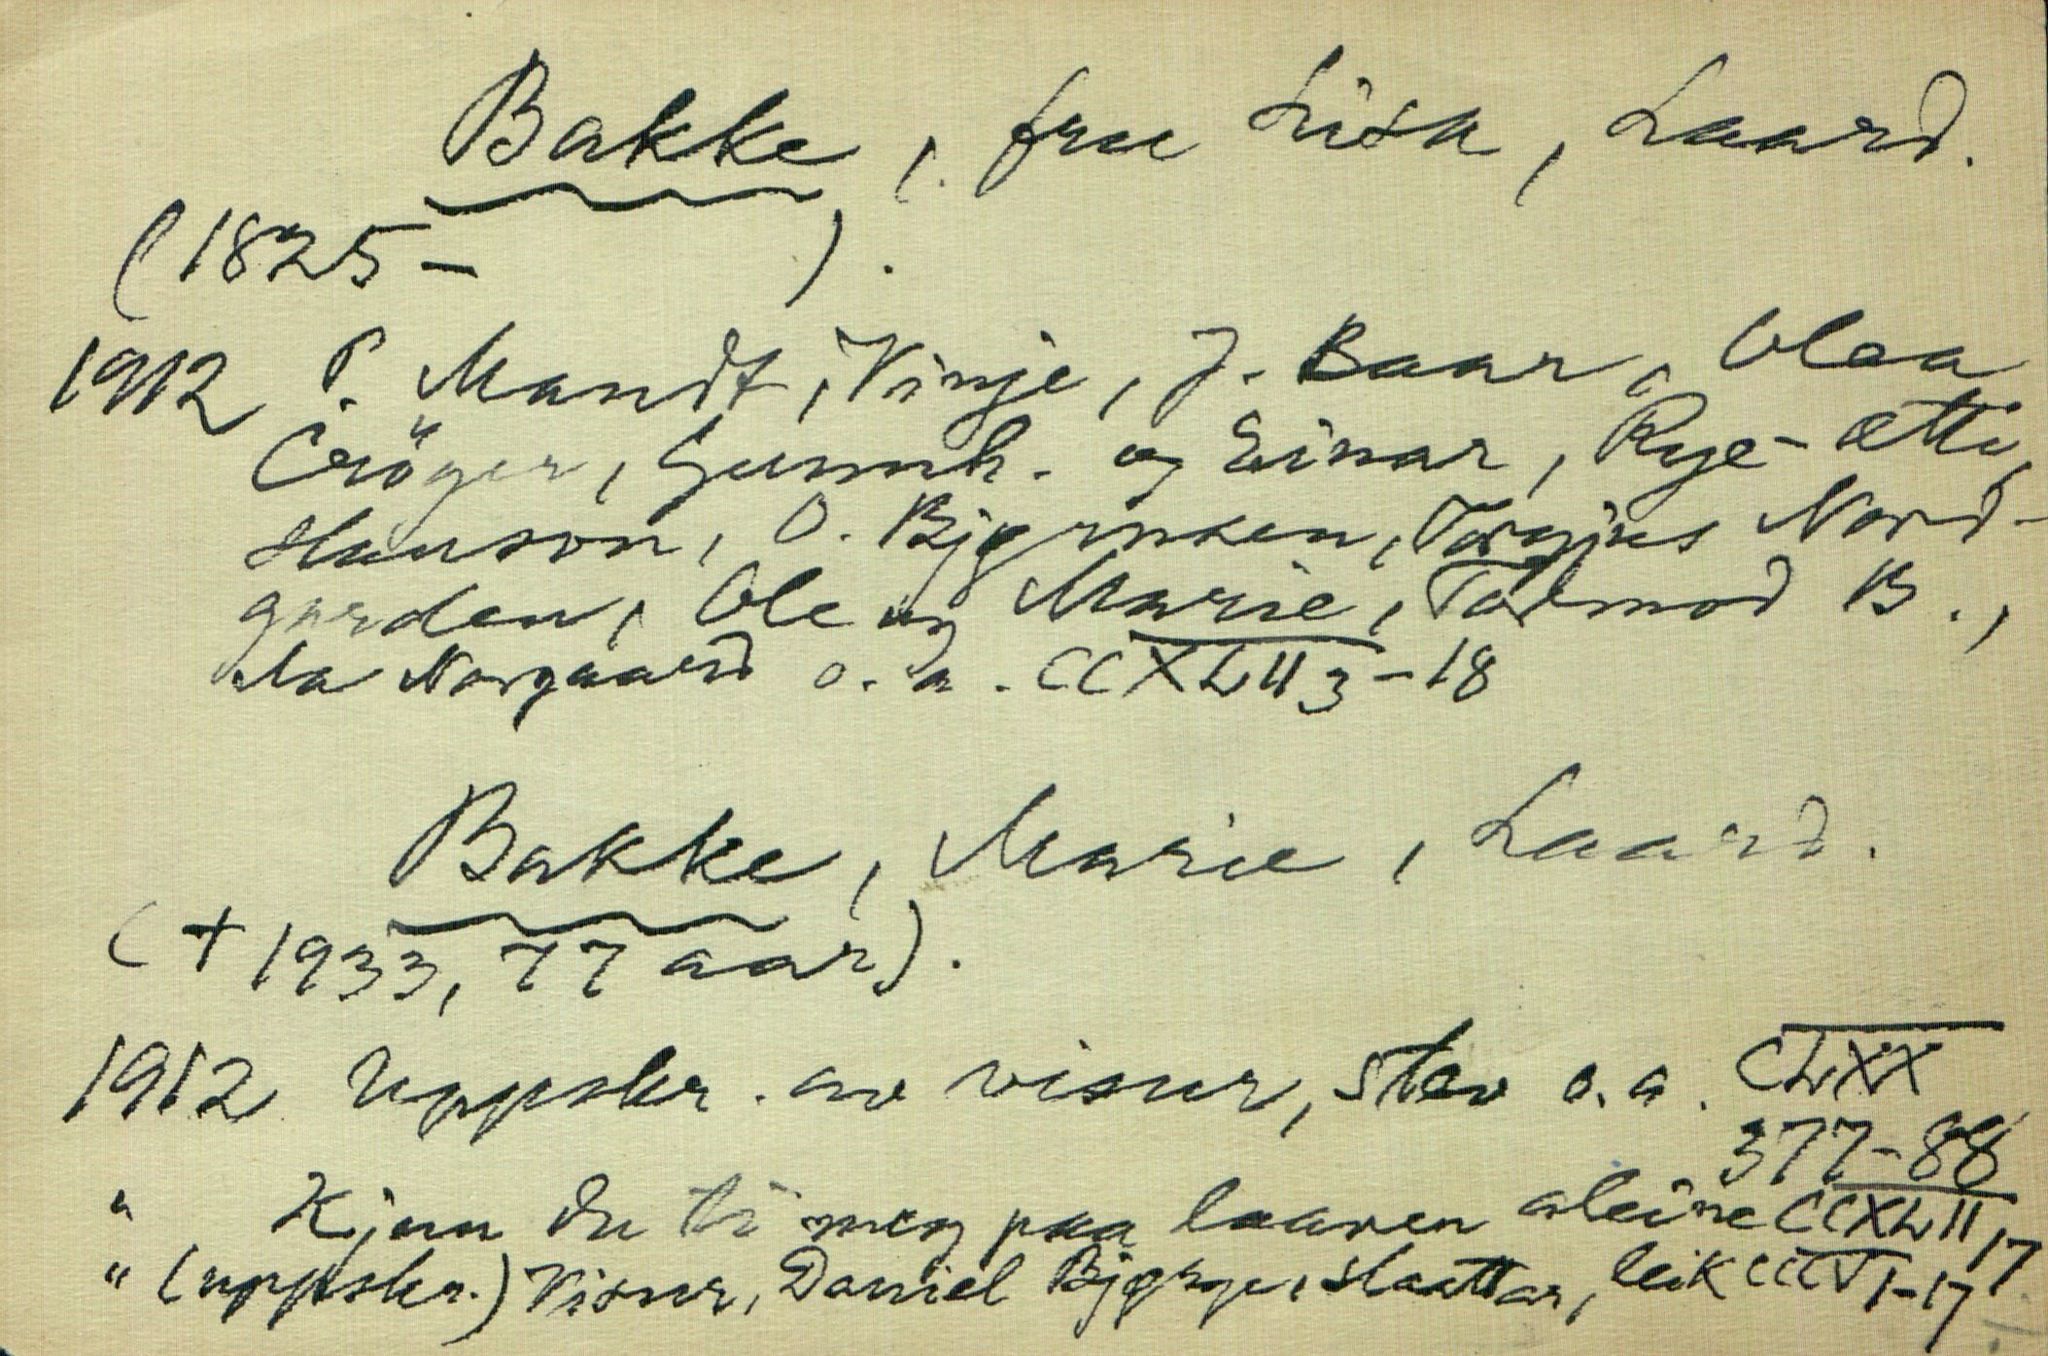 Bakke, fru Lisa, Laard.
(1825- ).
1912 P. Mandt, Vinje, J. Baar, Olea
Cröger, Gunnh. og Einar, Rye-ætti,
Hanson, O. Bjørnsen, Torgjus Nord-
garden, Ole og Marie, Tormod B.,
Ma Norgaard o. a. CCXLII 3-18
Bakke, Marie, Laard.
(† 1933, 77 aar).
1912 Uppskr. av visur, stev o.a. CLXX
377-88
" Kjem du ti meg paa laaven aleine CCXLII 17
" (uppskr.) Visur, Daniel Bjørge, slaattar, leik CCCV 1-17